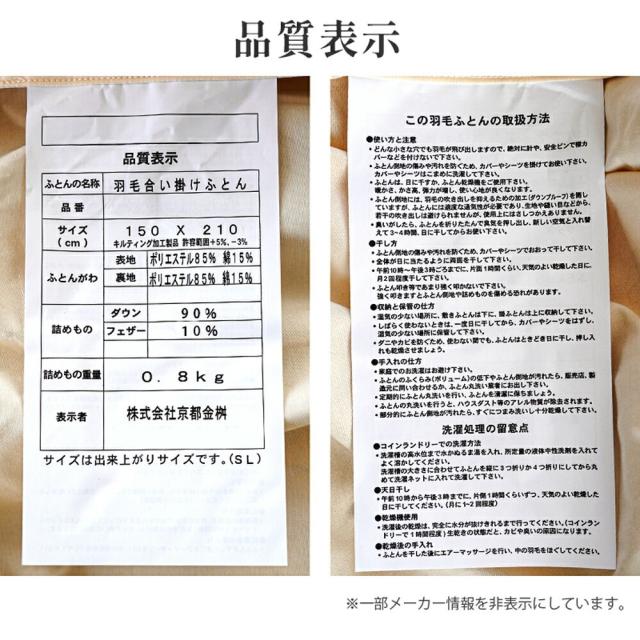 品質表示
品質表示
ふとんの名称 羽毛合い掛けふとん
品番
サイズ(cm) 150 X 210
キルティング加工製品 許容範囲+5%、-3%
ふとんがわ 表地 ポリエステル85% 綿15%
裏地 ポリエステル85% 綿15%
詰めもの ダウン 90%
フェザー 10%
詰めもの重量 0.8kg
表示者 株式会社京都金桝
サイズは出来上がりサイズです。(SL)
この羽毛ふとんの取扱方法
●使い方と注意
・どんな小さな穴でも羽毛が飛び出しますので、絶対に針や、安全ピンで襟カ
バーなどを付けないで下さい。
・ふとん側地の傷みや汚れを防ぐため、カバーやシーツを掛けてお使い下さい。
カバーやシーツはこまめに洗濯して下さい。
・ふとんは、日に干すか、ふとん乾燥機をご使用下さい。
暖かさ、かさ高、弾力が増し、使い心地が良くなります。
・ふとん側地には、羽毛の吹き出しを抑えるための加工(ダウンプルーフ)を施し
ていますが、ふとんには適度な通気性が必要であり、生地や縫い目などから、
若干の吹き出しは避けられませんが、使用上にはさしつかえありません。
・臭いがしたら、ふとんを折りたたんで臭気を押し出し、新しい空気と入れ替
えて3~4時間、日に干してからお使い下さい。
●干し方
・ふとん側地の傷みや汚れを防ぐため、カバーやシーツでおおって干して下さい。
・全体が日に当たるように両面を干して下さい。
・午前10時~午後3時ごろまでに、片面1時間くらい、天気のよい乾燥した日に、
月2回程度干して下さい。
・ふとん叩き等であまり強く叩かないで下さい。
強く叩きますとふとん側地や詰めものを傷める恐れがあります。
●収納と保管の仕方
・湿気の少ない場所に、敷きふとんは下に、掛ふとんは上に収納して下さい。
・しばらく使わないときは、一度日に干してから、カバーやシーツをはずし、
湿気の少ない場所に保管して下さい。
・ダニやカビを防ぐため、使わない間でも、ふとんはときどき日に干し、押し入
れも乾燥させましょう。
●手入れの仕方
・家庭でのお洗濯はお避け下さい。
・ふとんのふくらみ(ボリューム)の低下やふとん側地が汚れたら、販売店、製
造元に問い合わせるか、ふとん丸洗い業者にお出し下さい。
・定期的にふとん丸洗いを行い、ふとんを清潔に保ちましょう。
・ふとんの丸洗いを行うと、ハウスダスト等のアレル物質が除去されます。
・部分的にふとん側地が汚れたら、すぐにつまみ洗いし十分乾燥して下さい。
洗濯処理の留意点
●コインランドリーでの洗濯方法
・洗濯槽の高水位まで水かぬるま湯を入れ、所定量の液体中性洗剤を入れて
よく溶かしてください。
・洗濯槽の大きさに合わせてふとんを縦に3つ折りか4つ折りにしてから丸
めて洗濯ネットに入れて洗濯して下さい。
●天日干し
・午前10時から午後3時までに、片側1時間くらいずつ、天気のよい乾燥した
日に干してください。(月に1~2回程度)
●乾燥機使用
・洗濯後の乾燥は、完全に水分が抜けきれるまで行ってください。(コインラン
ドリーで1時間程度)生乾きの状態だと、カビや臭いの原因になります。
●乾燥後の手入れ
・ふとんを干した後にエアーマッサージを行い、中の羽毛をほぐしてください。
※一部メーカー情報を非表示にしています。